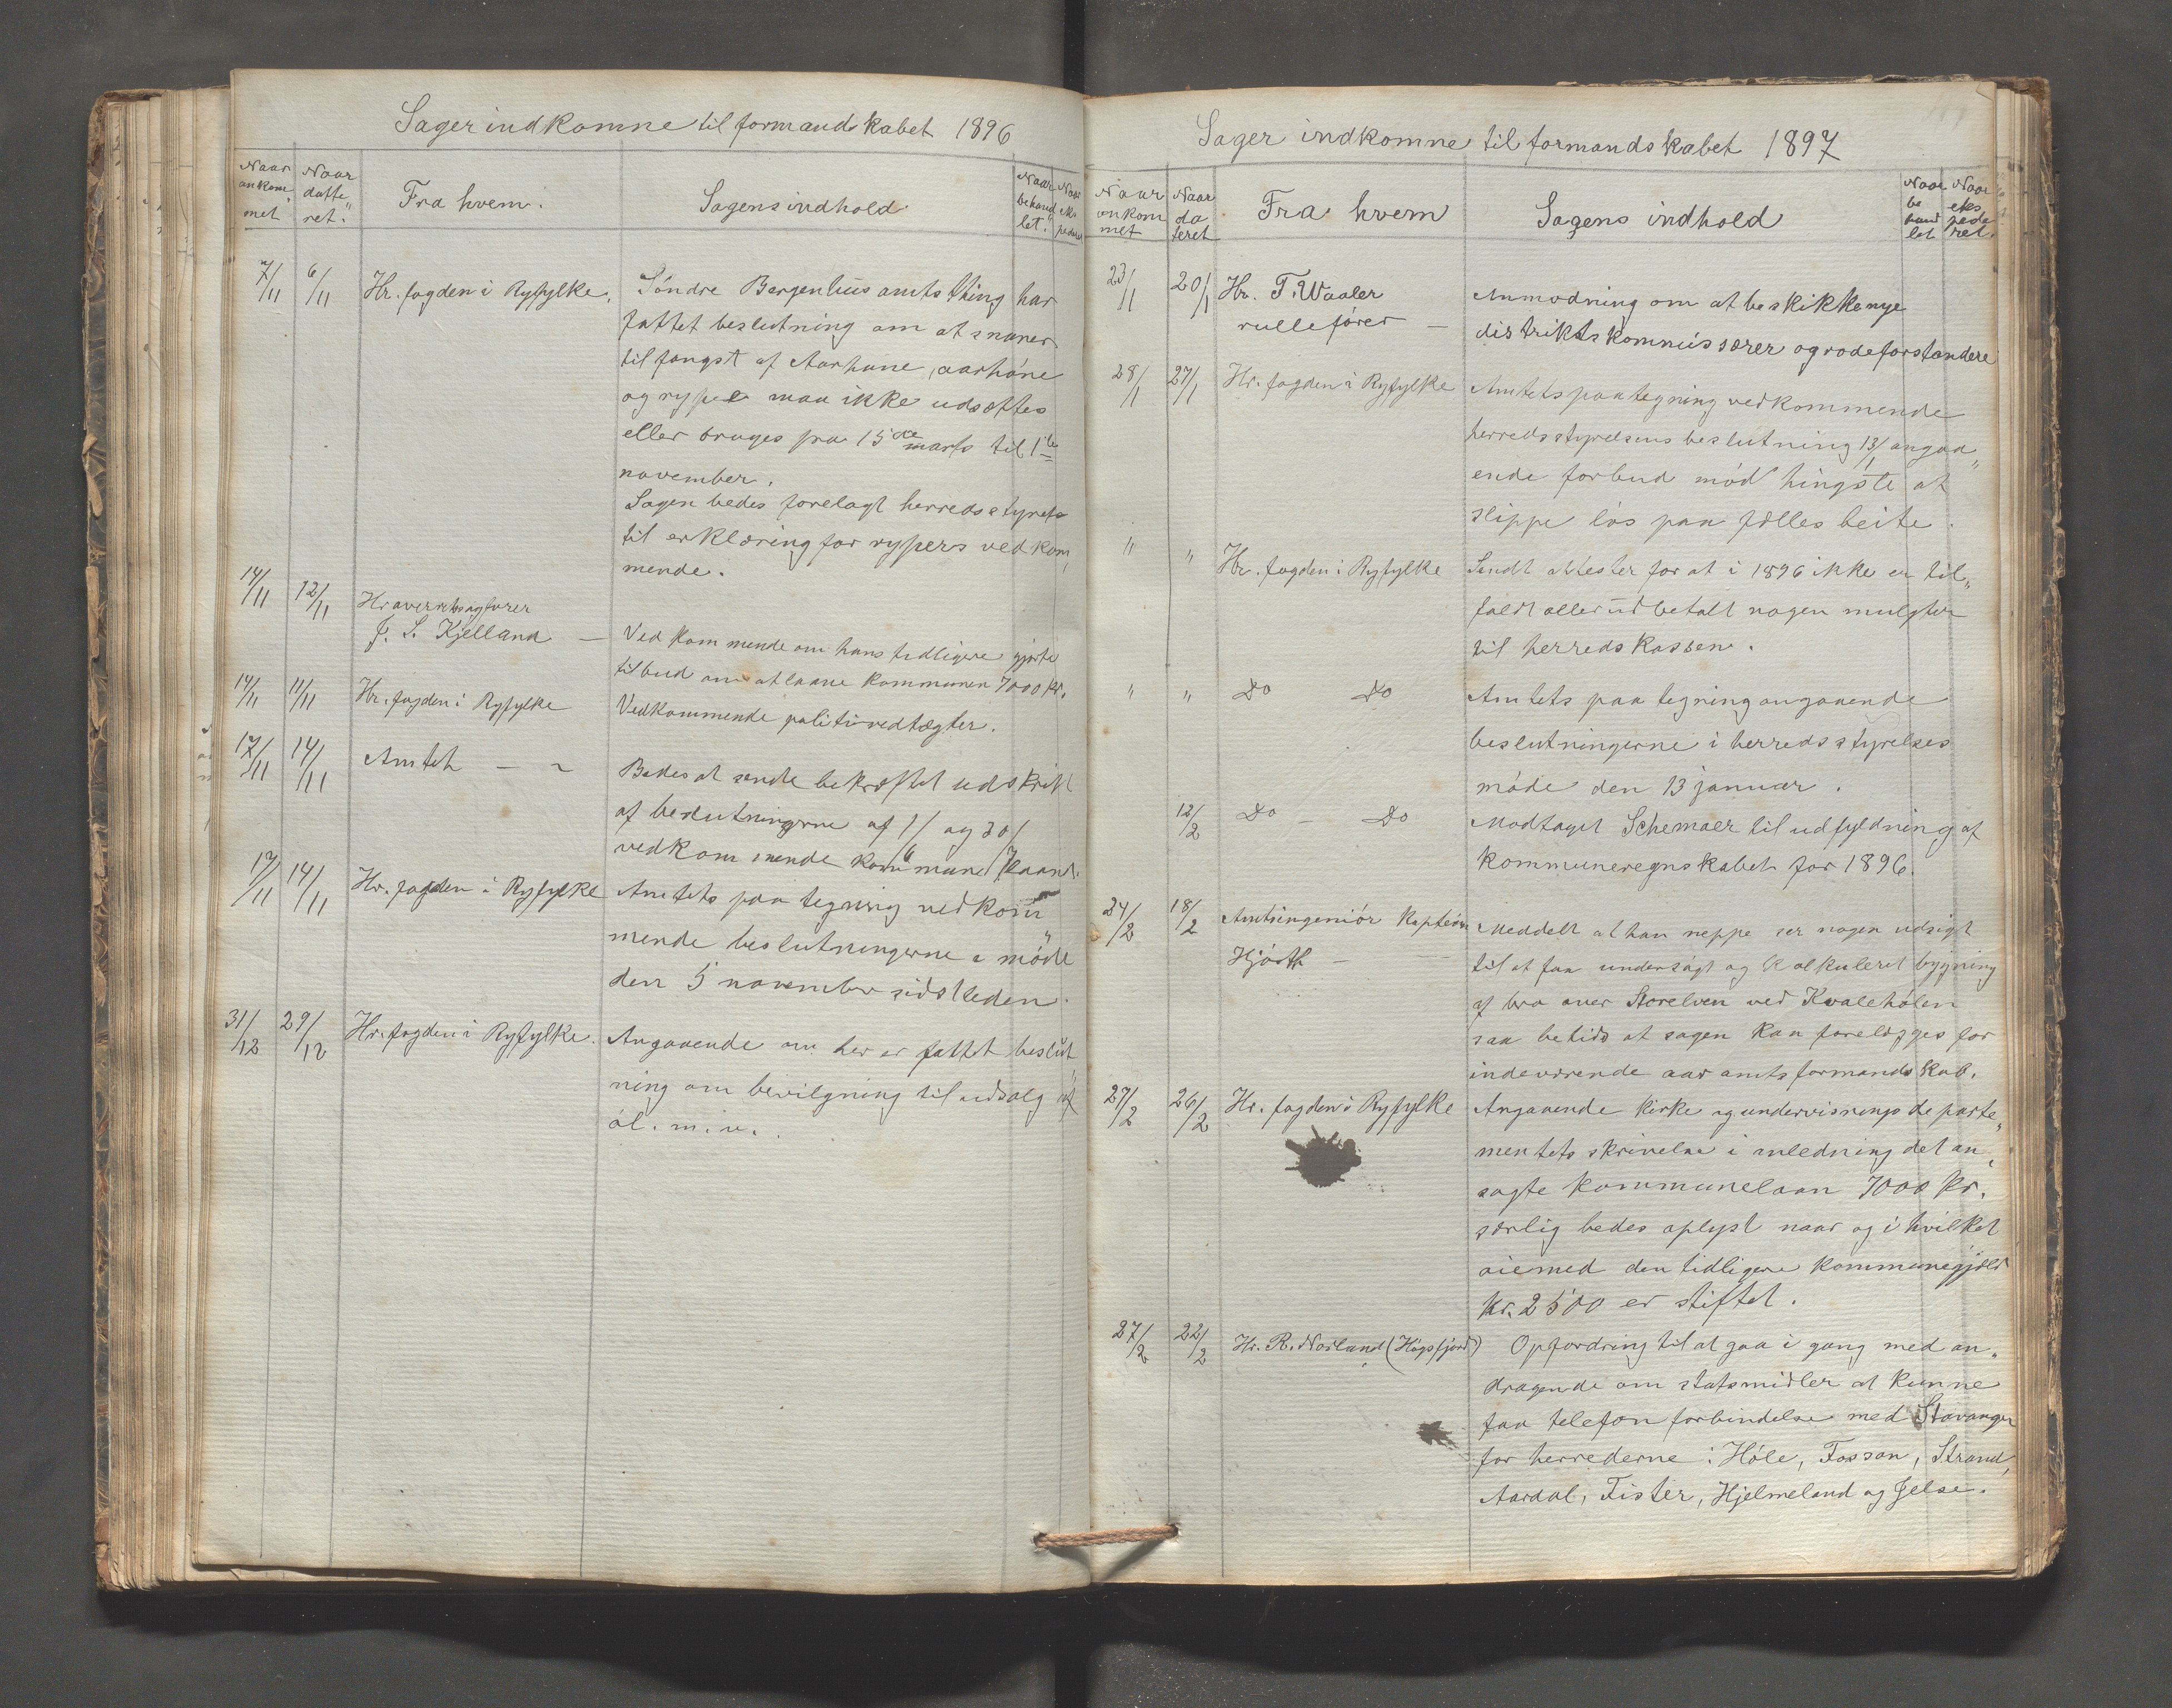 Sager indkomne til formandskabet 1896
Naar ankom„met
Naar datte„ret.
Fra hvem.
Sagens indhold
Naar behand„let.
Naar eks pederet
7/11 6/11 Hr. fogden i Ryfylke. Söndre Bergenhus amts thing har
fattet beslutning om at snarer
til fangst af Aarhane, aarhöne
og ryper maa ikke udsættes
eller bruges fra 15de marts til 1te
november.
Sagen bedes forelagt herredsstyret
til erklæring for rypers vedkom„
mende.
14/11 12/11 Hr overretssagfører
J. S. Kjelland — Ved kommende om hans tidligere gjorte
tilbud om at laane kommunen 7000 kr.
14/11 11/11 Hr. fogden i Ryfylke Vedkommende politivedtægter.
17/11 14/11 Amtet — ~ Bedes at sende bekræftet udskrift
af beslutningerne af 1/6 og 30/7
vedkommende kommunelaant.
17/11 14/11 Hr. fogden i Ryfylke Amtets paategning vedkom„
mende beslutningerne i möde
den 5 november sidstleden.
31/12 29/12 Hr. fogden i Ryfylke. Angaaende om her er fattet beslut„
ning om bevilgning til udsalg af
öl. m. v.
Sager indkomne til formandskabet 1897
Naar ankom met
Naar da teret
Fra hvem
Sagens indhold
Naar be hand let
Naar eks pede ret.
23/1 20/1 Hr. T. Waaler Anmodning om at beskikke nye
rulleförer — distriktskommissærer og rodeforstandere
28/1 27/1 Hr. fogden i Ryfylke Amtets paategning vedkommende
herredsstyrelsens beslutning 13/1 angaa„
ende forbud mod hingste at
slippe lös paa fælles beite.
" " Hr. fogden i Ryfylke Sendt attester for at i 1896 ikke er til„
faldt eller udbetalt nogen mulgter
til herredskassen.
" " Do Do Amtets paategning angaaende
beslutningerne i herredsstyrelses
möde den 13 januar.
12/2 Do — Do Modtaget Schemaer til udfyldning af
kommuneregnskabet for 1896.
24/2 18/2 Amtsingeniör Kaptein Meddelt at han neppe ser nogen udsigt
Hjorth — — til at faa undersögt og kalkuleret bygning
af bro over Storelven ved Kvalehölen
saa betids at sagen kan forelægges for
indeværende aar amtsformandskab.
27/2 26/2 Hr. fogden i Ryfylke Angaaende kirke og undervisningsdeparte„
mentets skrivelse i anledning det an„
sögte kommunelaan 7000 kr.
særlig bedes oplyst naar og i hvilket
öiemed den tidligere kommunegjæld
kr. 2500 er stiftet.
27/2 22/2 Hr. R. Norland (Högsfjord) Opfordring til at gaa i gang med an„
dragende om statsmidler at kunne
faa telefonforbindelse med Stavanger
for herrederne: Höle, Fossan, Strand,
Aardal, Fister, Hjelmeland og Jelse.